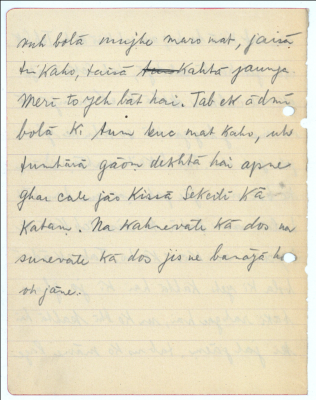 vuh bolā mujhe maro mat, jaisā
tu kaho, taisā kahtā jaunga
Merī to yeh bāt hai. Tab ek ādmī
bolā ki tum kuc mat kaho, uh
tumhārā gāoṃ dekhtā hai apne
ghar cale jāo Kissā Sekcilī Kā
Katam. Na Kahnevāle Kā dos na
sunevāle Kā dos jis ne banāyā ho
oh jāne.